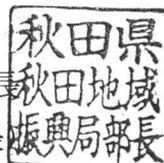 秋田県
秋田地域
振興局部長